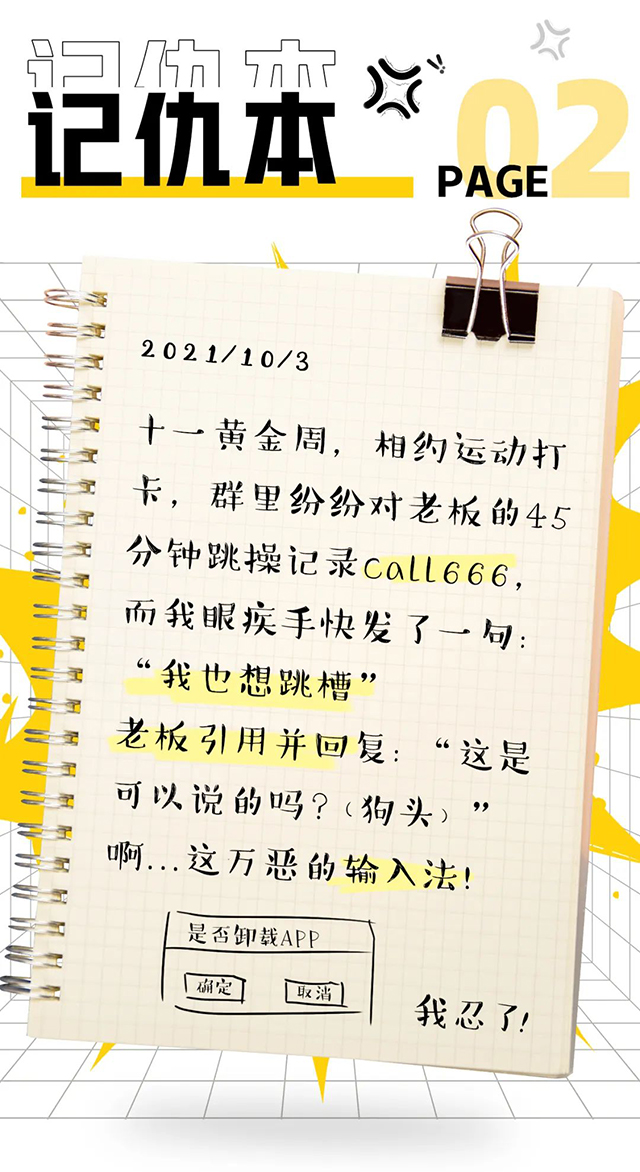 记仇本
记仇本
02
PAGE
2021/10/3
十一黄金周，相约运动打
卡，群里纷纷对老板的45
分钟跳操记录call666，
而我眼疾手快发了一句：
“我也想跳槽”
老板引用并回复：“这是
可以说的吗？（狗头）”
啊...这万恶的输入法！
是否卸载APP
确定 取消
我忍了！